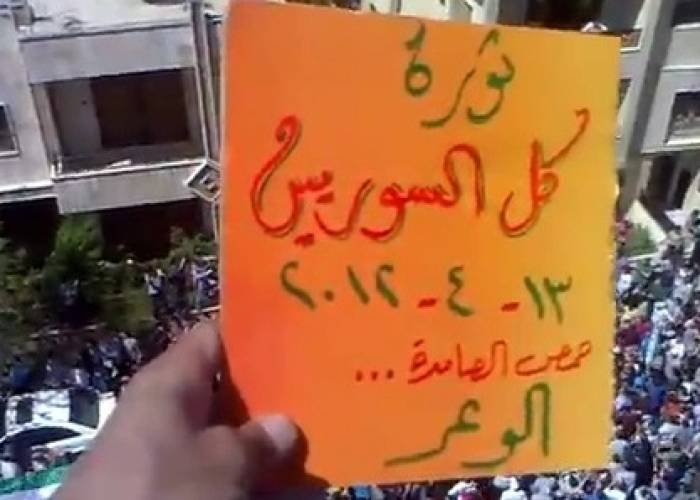 ثورة
كل السوريين
١٣ - ٤ - ٢٠١٢
حمص الصامدة ...
الوعر